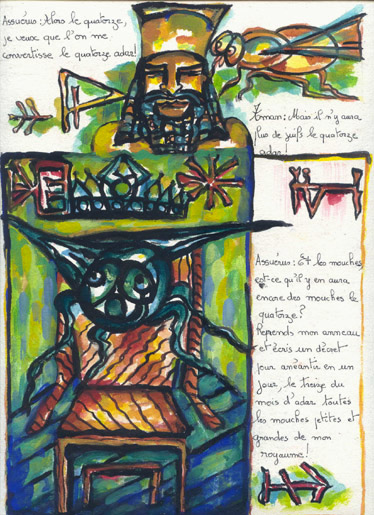 Assuérus: Alors le quatorze,
je veux que l'on me
convertisse le quatorze adar!
Aman: Mais il n'y aura
plus de juifs le quatorze
adar!
Assuérus: Et les mouches
est-ce qu'il y en aura
encore des mouches le
quatorze?
Reprends mon anneau
et écris un décret
pour anéantir en un
jour, le treize du
mois d'adar toutes
les mouches petites et
grandes de mon
royaume!